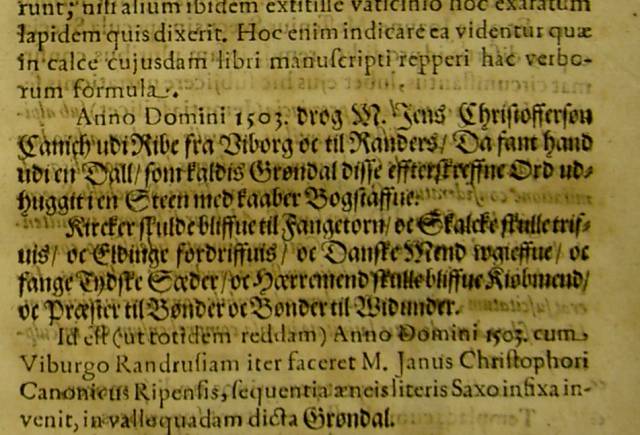 runt; nisi alium ibidem extitisse vaticinio hoc exaratum
lapidem quis dixerit. Hoc enim indicare ea videntur quæ
in calce cujusdam libri manuscripti repperi hac verbo-
rum formula.
Anno Domini 1503. drog M. Jens Christofferson
Canich udi Ribe fra Viborg oc til Randers/ Da fant hand
udi en Dall/ som kaldis Grøndal disse effterskreffne Ord ud-
huggit i en Steen med kaaber Bogstaffue.
Kircker skulde bliffue til Fangetorn/ oc Skalcke skulle trif-
uis/ oc Eldinge fordriffuis/ oc Danske Mend wgieffue/ oc
fange Tydske Sæder/ oc Hærremend skulle bliffue Kiøbmend/
oc Præster til Bønder oc Bønder til Widunder.
Id est (ut totidem reddam) Anno Domini 1503. cum
Viburgo Randrusiam iter faceret M. Janus Christophori
Canonicus Ripensis, sequentia æneis literis Saxo infixa in-
venit, in valle quadam dicta Grøndal.